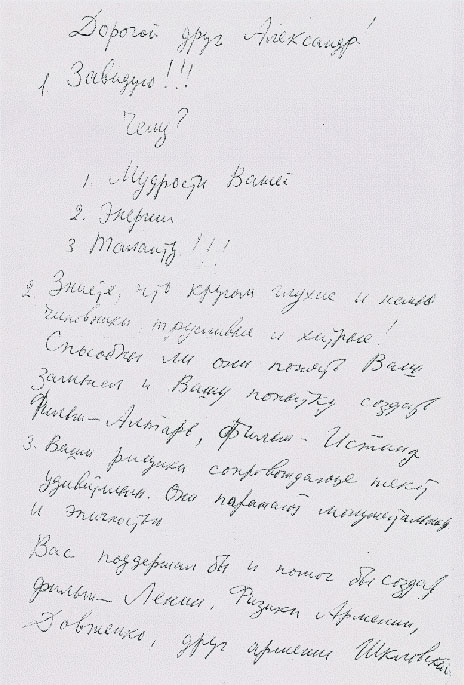 Дорогой друг Александр!
1 Завидую!!!
Чему?
1. Мудрости Вашей
2. Энергии
3 Таланту!!!
2 Знаете, что кругом глухие и немые
чиновники трусливые и хитрые!
Способны ли они понять Ваш
замысел и Вашу попытку создать
Фильм-Алтарь, Фильм-Истину
3. Ваши рисунки сопровождающие текст
удивительны. Они поражают монументальностью
и эпичностью
Вас поддержал бы и помог бы создать
фильм- Ленин, Физики Армении,
Довженко, друг армении Шкловский